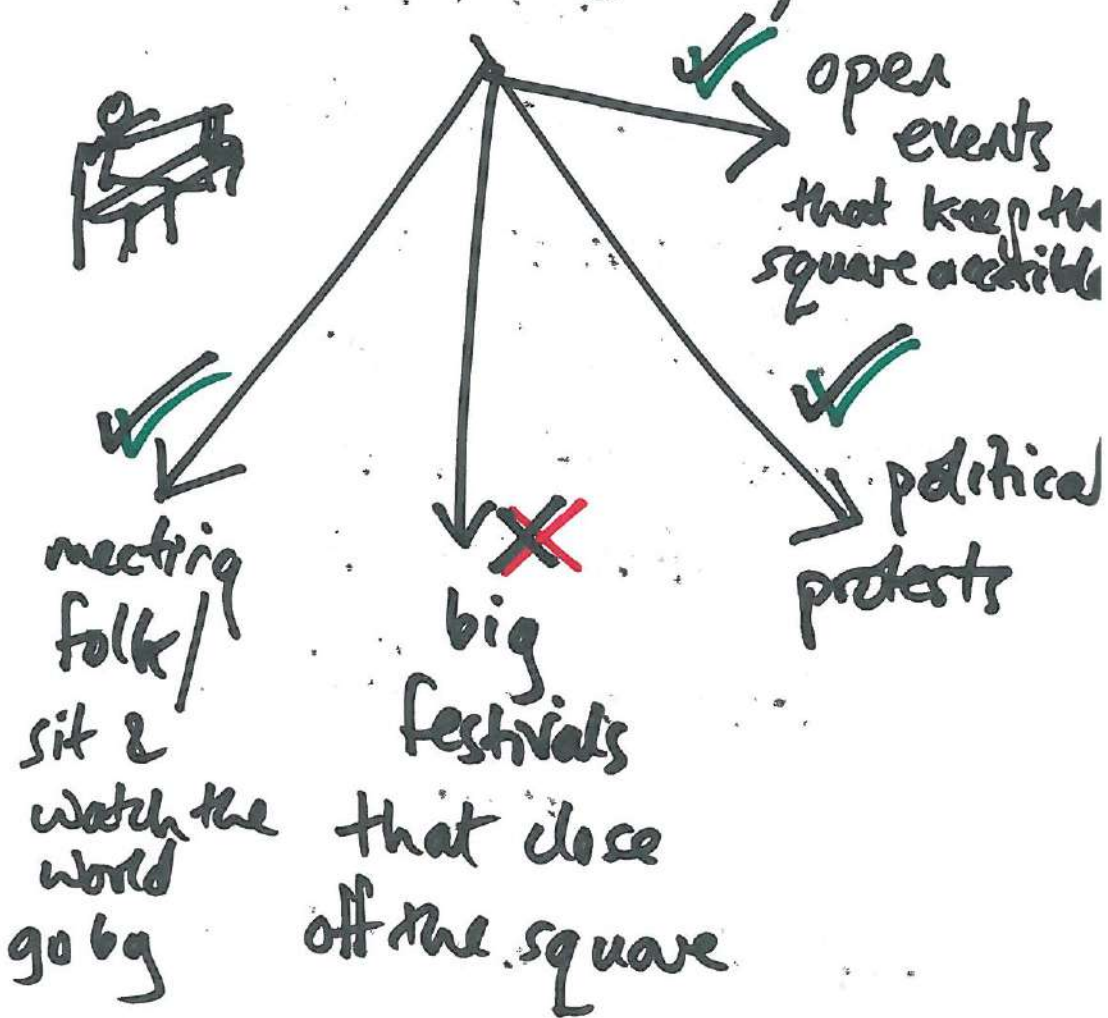 open
events
that keep the
square accessible
political
protests
meeting
folk/
sit &
watch the
world
go by
big
festivals
that close
off the square